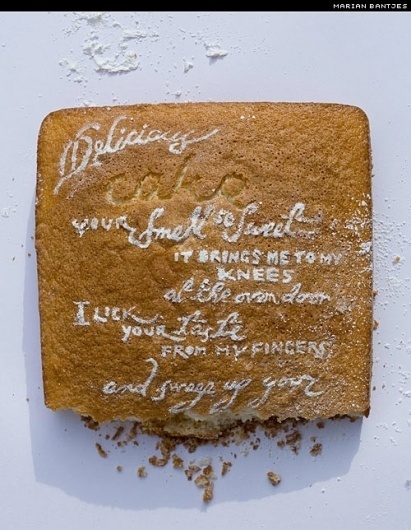 MARIAN BANTJES
Delicious
cake
YOUR Smell so Sweet
IT BRINGS ME TO MY
KNEES
at the oven door
I LICK
YOUR taste
FROM MY FINGERS
and sweep up your